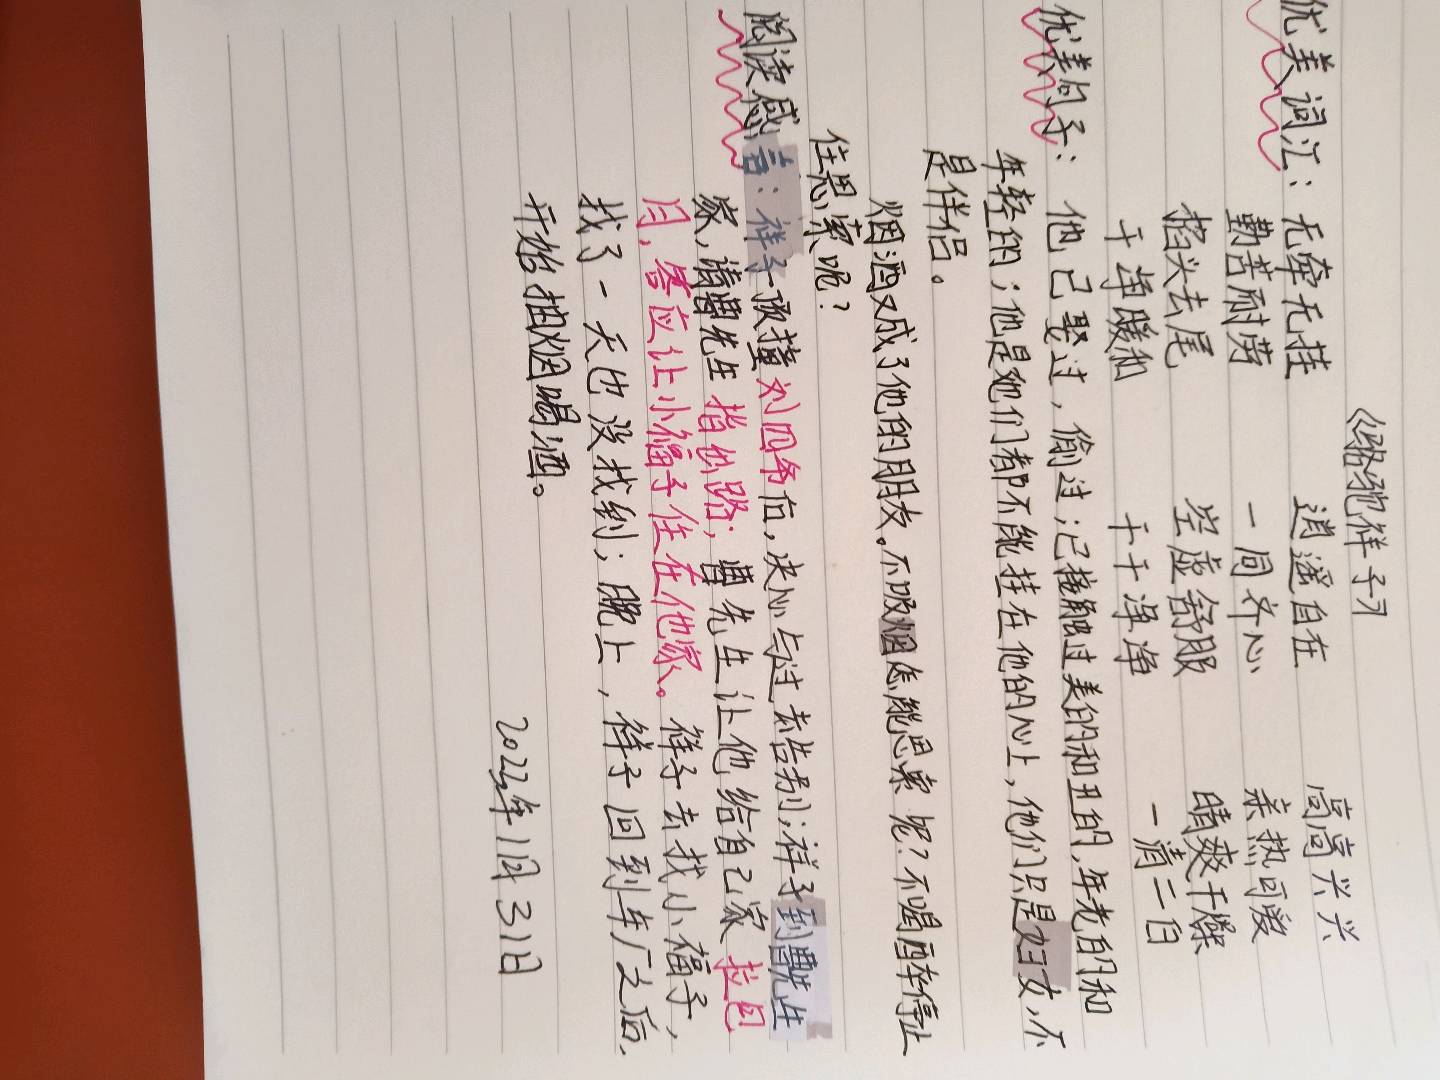 《骆驼祥子》
优美词汇：无牵无挂 逍遥自在 高高兴兴
勤苦耐劳 一同齐心 亲热可爱
掐头去尾 空虚舒服 晴爽干燥
干净暖和 干干净净 一清二白
优美句子：他已娶过，偷过；已接触过美的和丑的，年老的和
年轻的；他是她们都不能挂在他的心上，他们只是妇女，不
是伴侣。
烟酒又成了他的朋友。不吸烟怎能思索呢？不喝醉停止
住思索呢？
阅读感言：祥子顶撞刘四爷后，决心与过去告别；祥子到曹先生
家，请曹先生指出路；曹先生让他给自己家拉包
月，答应让小福子住在他家。祥子去找小福子，
找了一天也没找到；晚上，祥子回到车厂之后，
开始抽烟喝酒。
2022年1月31日